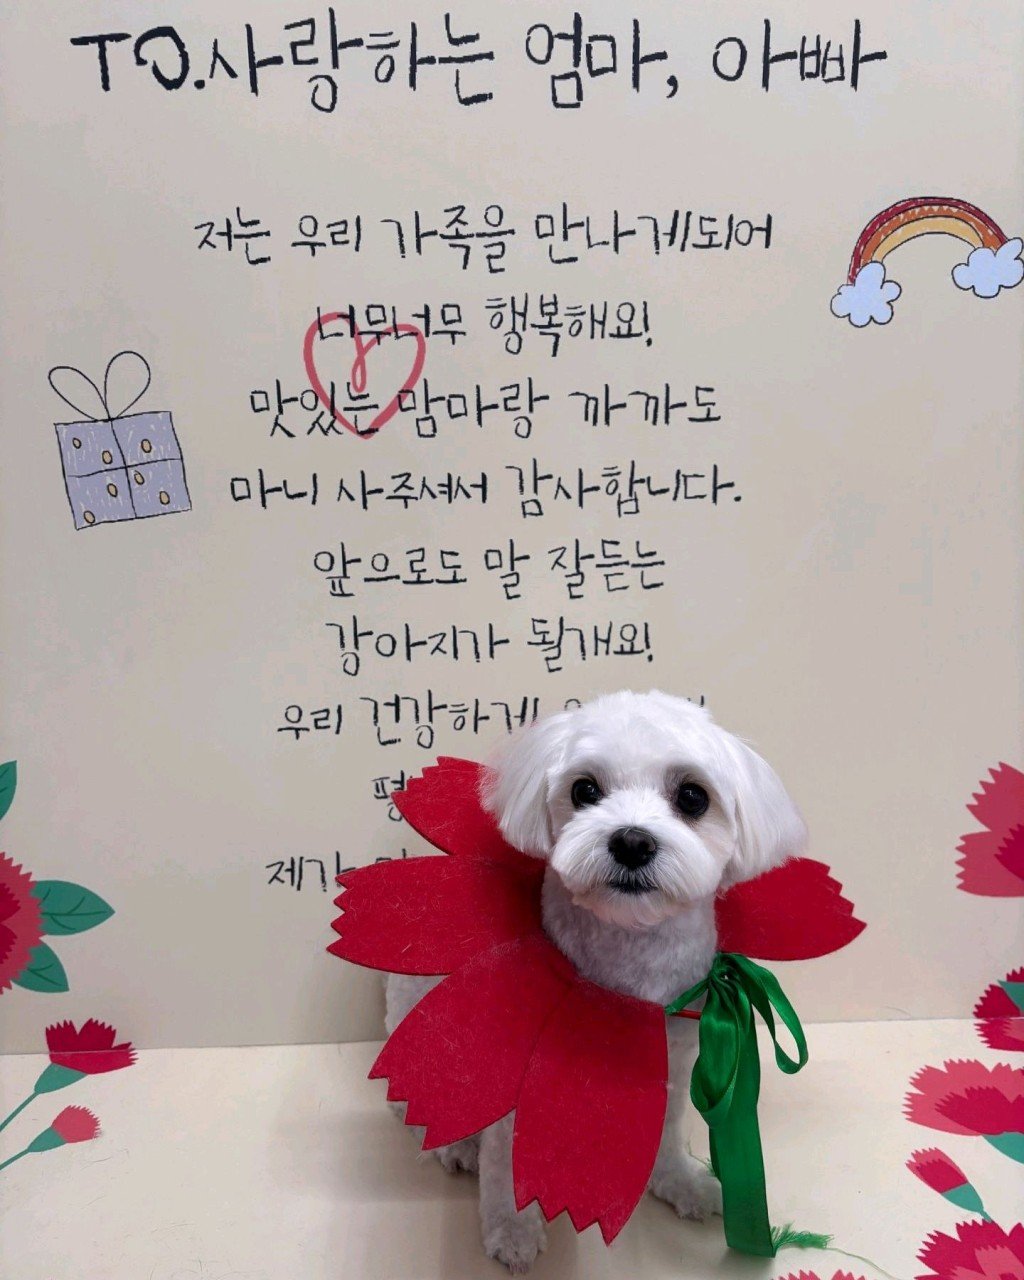 TO.사랑하는 엄마, 아빠
저는 우리 가족을 만나게되어
너무너무 행복해요!
맛있는 맘마랑 까까도
마니 사주셔서 감사합니다.
앞으로도 말 잘듣는
강아지가 될개요!
우리 건강하게
제가